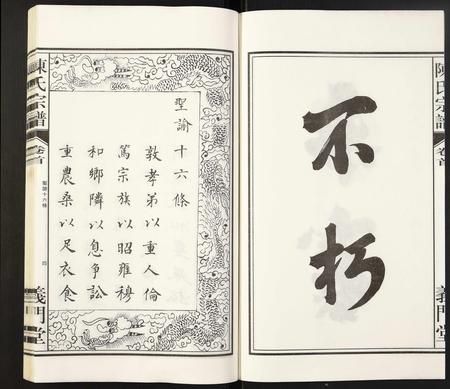 陳氏宗譜
卷首
義門堂
不朽
聖諭十六條
敦孝弟以重人倫
篤宗族以昭雍穆
和鄉隣以息争訟
重農桑以足衣食
陳氏宗譜
卷首
聖諭十六條
四
義門堂